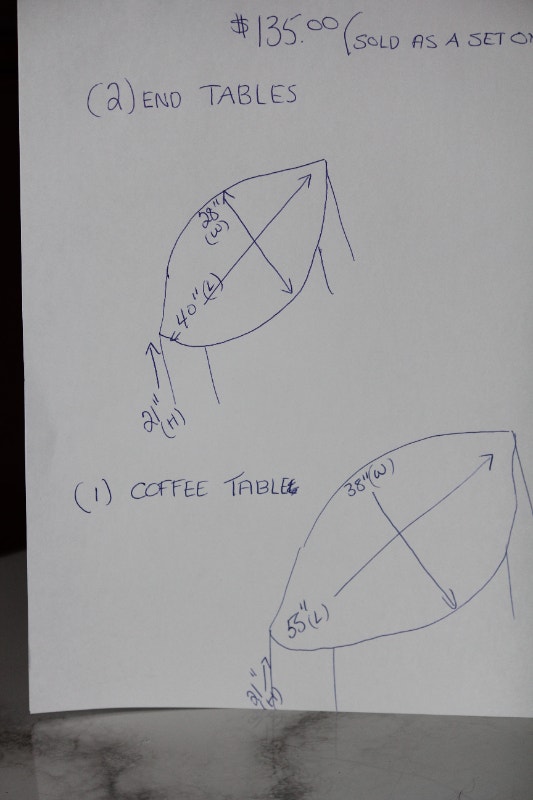 $135.00 (SOLD AS A SET
(2) END TABLES
28" (W)
40" (L)
21" (H)
(1) COFFEE TABLE
38" (W)
55" (L)
21" (H)